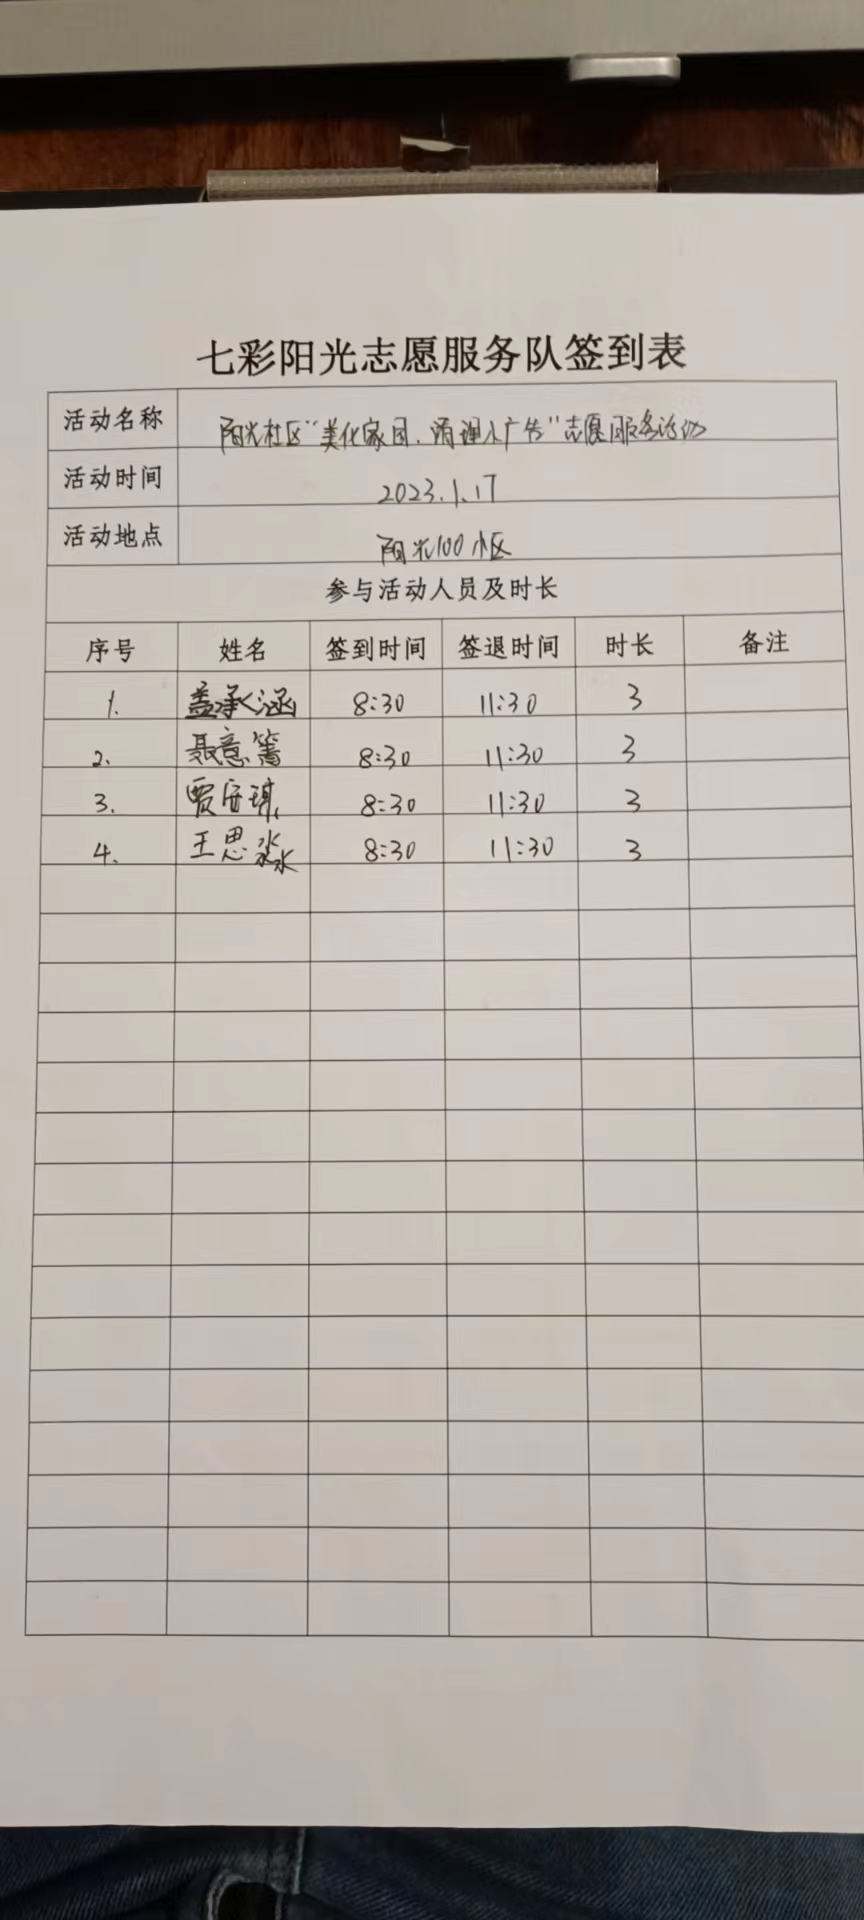 七彩阳光志愿服务队签到表
活动名称 阳光社区“美化家园、清理小广告”志愿服务活动
活动时间 2023.1.17
活动地点 阳光100小区
参与活动人员及时长
序号 姓名 签到时间 签退时间 时长 备注
1. 盖承涵 8:30 11:30 3
2. 聂意篱 8:30 11:30 3
3. 贾安琪 8:30 11:30 3
4. 王思淼 8:30 11:30 3